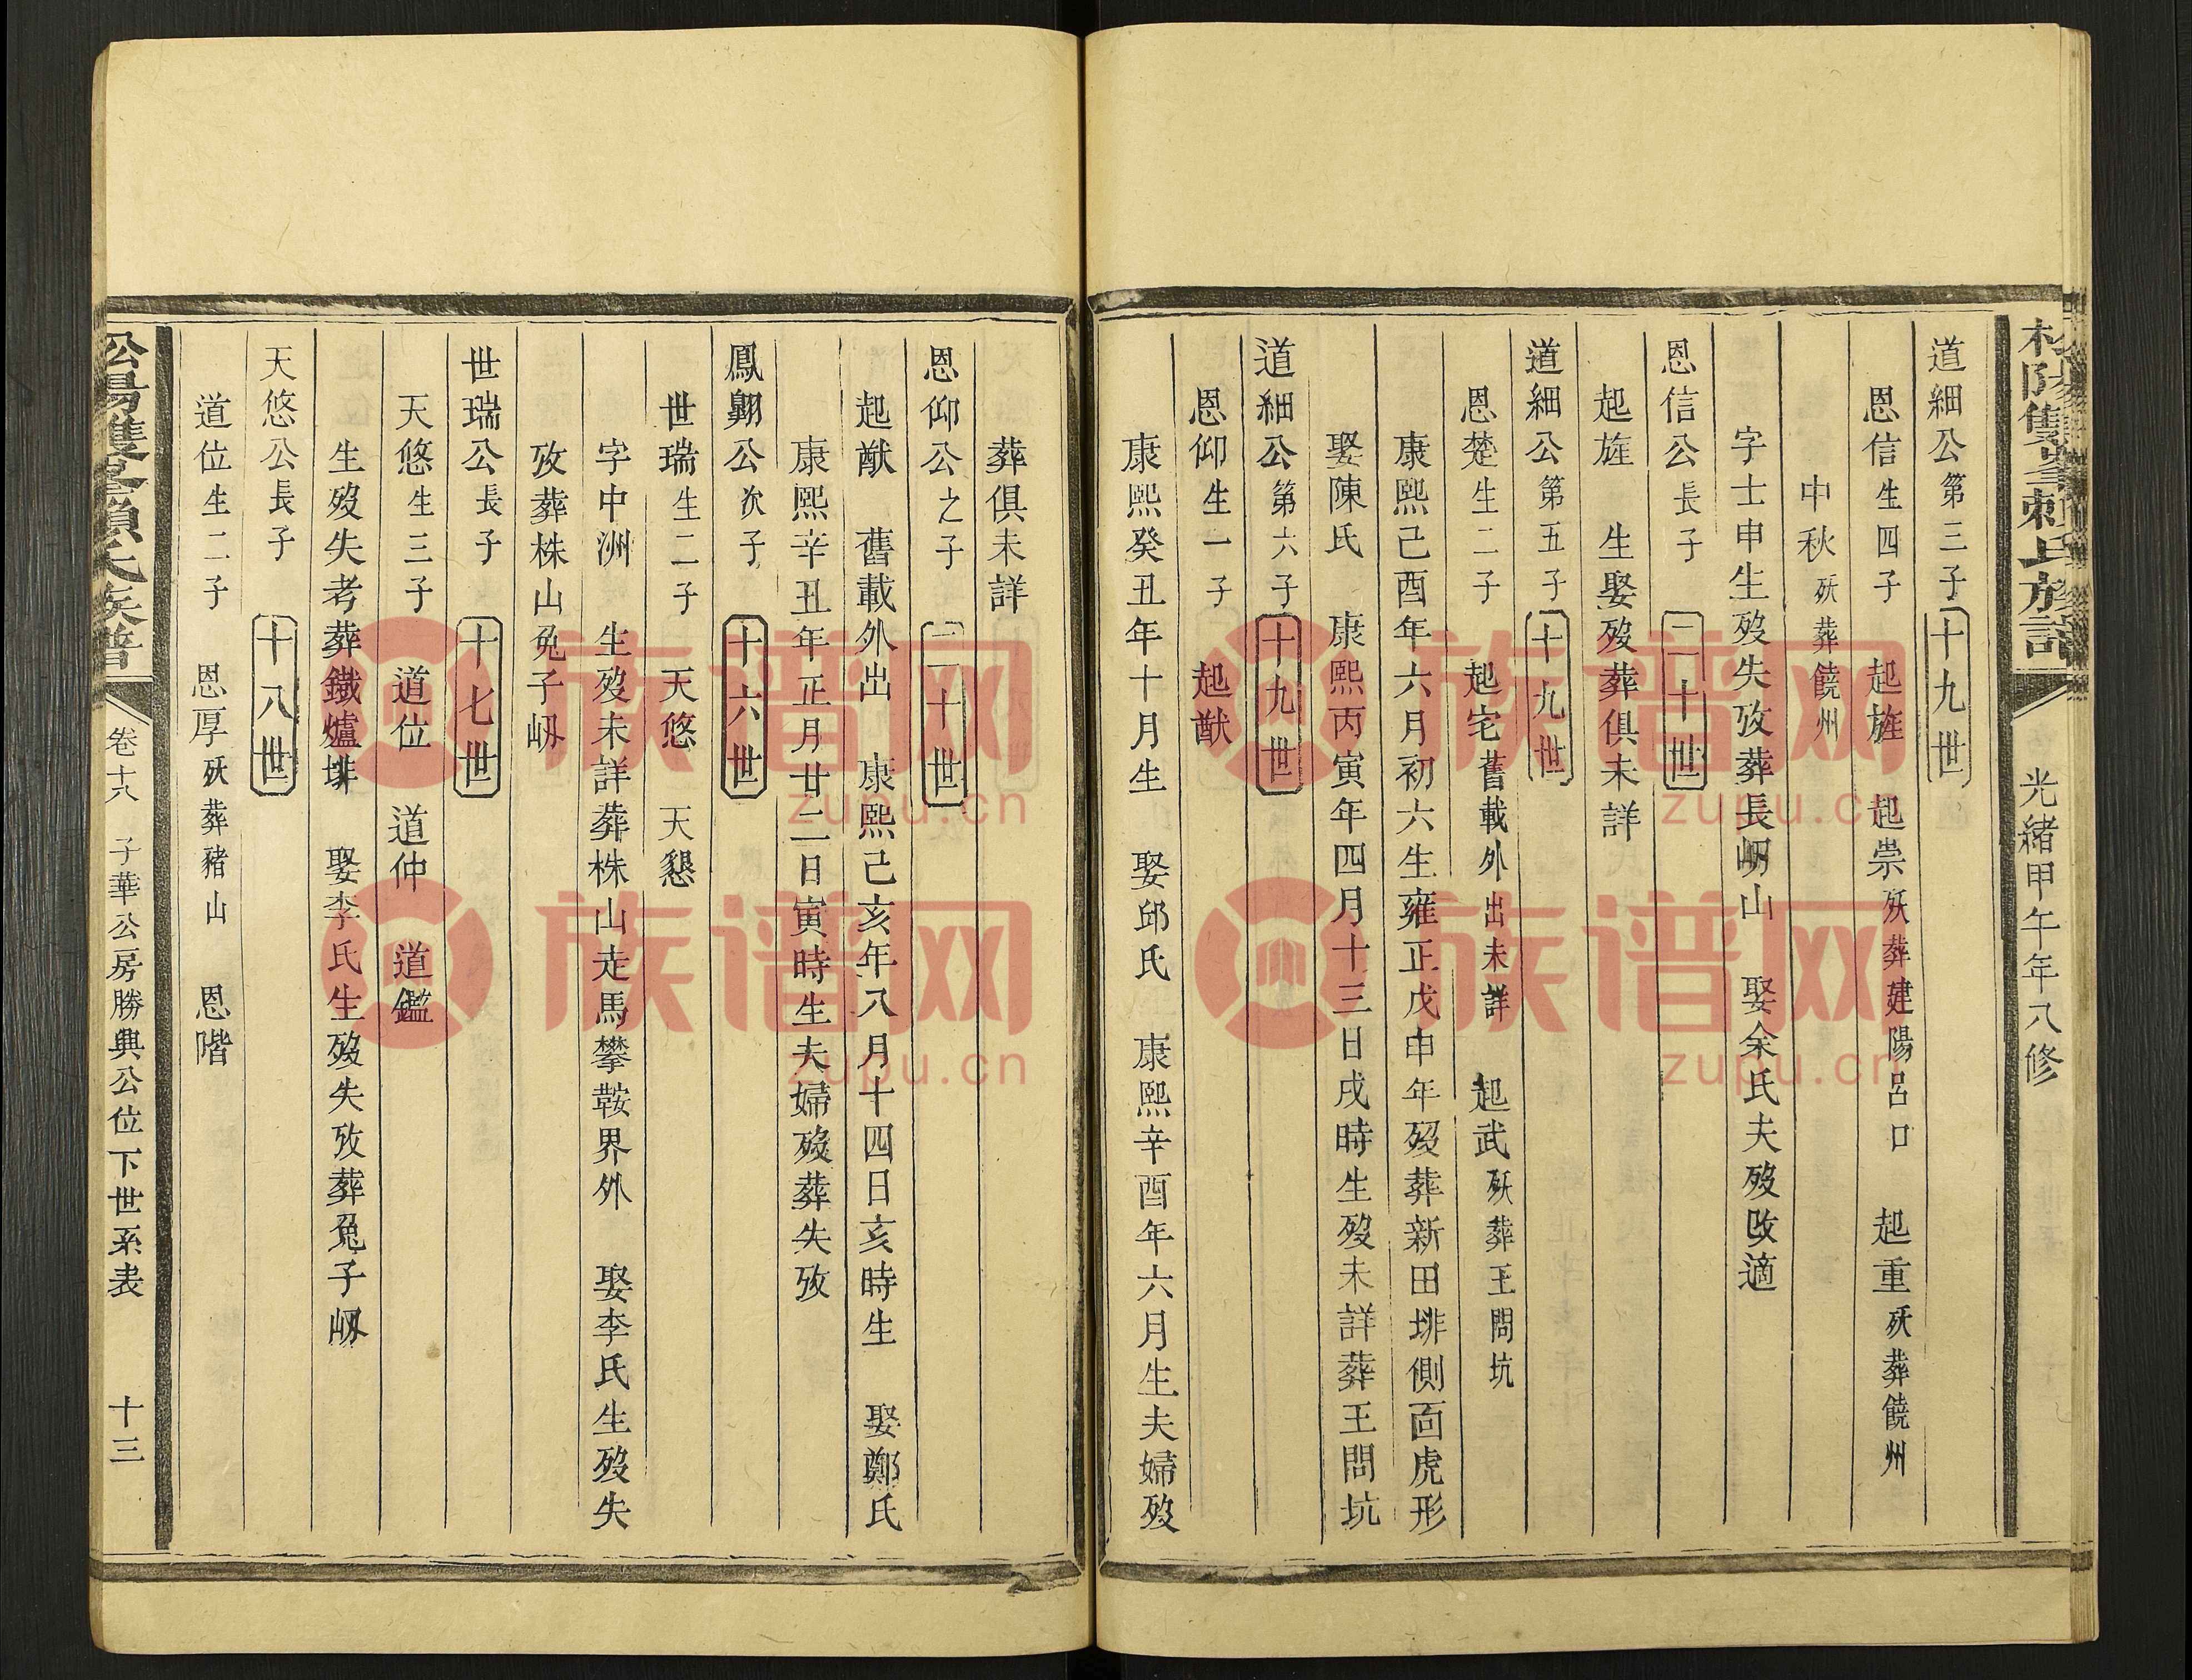 光緒甲午年八修
道細公第三子 十九世
恩信生四子 起旌 起崇殀葬建陽呂口 起重殀葬饒州
中秋殀葬饒州
字士申生歿失攷葬長㘭山 娶余氏夫歿改適
恩信公長子 二十世
起旌 生娶歿葬俱未詳
道細公第五子 十九世
恩楚生二子 起宅舊載外出未詳 起武殀葬王問坑
康熙己酉年六月初六生雍正戊申年歿葬新田墘側面虎形
娶陳氏 康熙丙寅年四月十三日戌時生歿未詳葬王問坑
道細公第六子 十九世
恩仰生一子 起猷
康熙癸丑年十月生 娶邱氏 康熙辛酉年六月生夫婦歿
葬俱未詳
恩仰公之子 二十世
起猷 舊載外出 康熙己亥年八月十四日亥時生 娶鄭氏
康熙辛丑年正月廿二日寅時生夫婦歿葬失攷
鳳翺公次子 十六世
世瑞生二子 天悠 天懇
字中洲 生歿未詳葬株山走馬攀鞍界外 娶李氏生歿失
攷葬株山兔子㘭
世瑞公長子 十七世
天悠生三子 道位 道仲 道鑑
生歿失考葬鐵爐墘 娶李氏生歿失攷葬兔子㘭
天悠公長子 十八世
道位生二子 恩厚殀葬豬山 恩階
松陽雙峯賴氏族譜 卷十八 子華公房勝興公位下世系表 十三
族谱网
zupu.cn
族谱网
zupu.cn
族谱网
zupu.cn
族谱网
zupu.cn